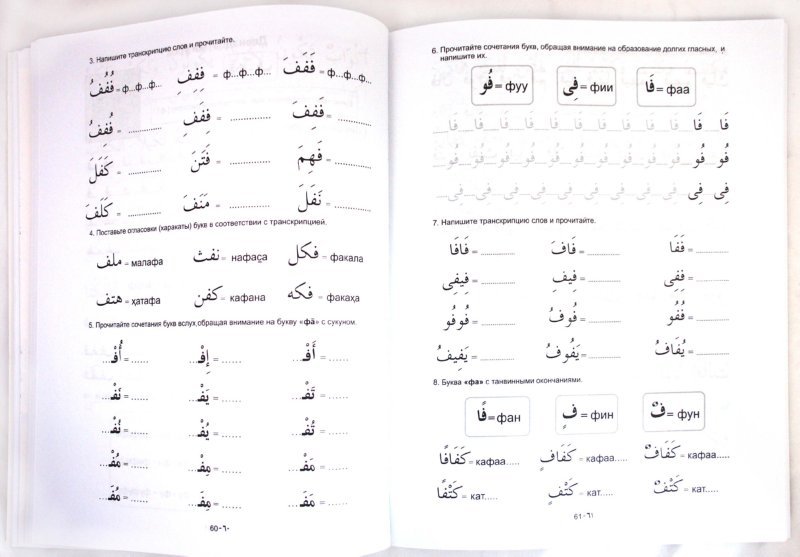 3. Напишите транскрипцию слов и прочитайте.
فُفُفُ = ф...ф...ф... فِفِفِ = ф...ф...ф... فَفَفَ = ф...ф...ф...
فُفِفُ = ............ فَفِفَ = ............ فَفِفَ = ............
كَفَلَ = ............ فَتَنَ = ............ فَهِمَ = ............
كَلَفَ = ............ مَنَفَ = ............ نَفَلَ = ............
4. Поставьте огласовки (харакаты) букв в соответствии с транскрипцией.
ملف = малафа نفث = нафаса فكل = факала
هتف = ҳатафа كفن = кафана فكه = факаҳа
5. Прочитайте сочетания букв вслух,обращая внимание на букву «фа» с сукуном.
أُفْ = ...... إِفْ = ...... أَفْ = ......
نَفْـ = ...... يَفْـ = ...... تَفْـ = ......
نُفْـ = ...... يُفْـ = ...... تُفْـ = ......
مُفْـ = ...... مِفْـ = ...... مَفْـ = ......
مُفَـ = ...... مِفَـ = ...... مَفَـ = ......
60 - ٦٠
6. Прочитайте сочетания букв, обращая внимание на образование долгих гласных, и
напишите их.
فُو = фуу فِى = фии فَا = фаа
فا فا فا فا فا فا فا فا فا فا فا
فُو فُو فو فو فو فو فو فو فو فو
فِى فِى فى فى فى فى فى فى فى
7. Напишите транскрипцию слов и прочитайте.
فَافَا = ............ فَافَ = ............ فَفَا = ............
فِيفِى = ............ فِيفِ = ............ فِفِى = ............
فُوفُو = ............ فُوفُ = ............ فُفُو = ............
يَفِيفُ = ............ يَفُوفُ = ............ يُفَافُ = ............
8. Буква «фа» с танвинными окончаниями.
فًا = фан فٍ = фин فٌ = фун
كَفَافًا = кафаа..... كَفَافٍ = кафаа..... كَفَافٌ = кафаа.....
كَتْفًا = кат..... كَتْفٍ = кат..... كَتْفٌ = кат.....
61 - ٦١